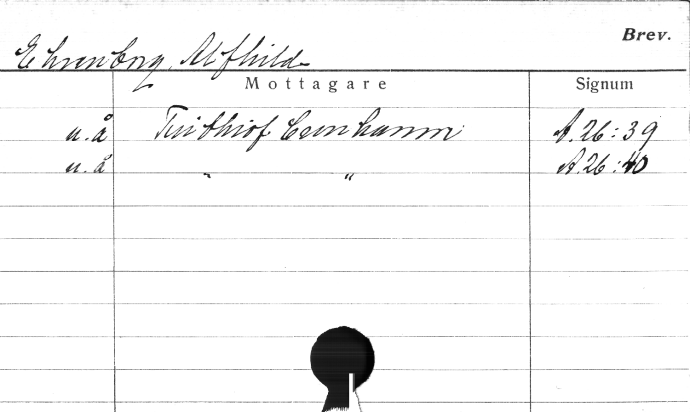 Brev.
Ehrenborg, Alfhild
Mottagare Signum
u. å Frithiof Cronhamm A. 26:39
u. å " " A. 26:40